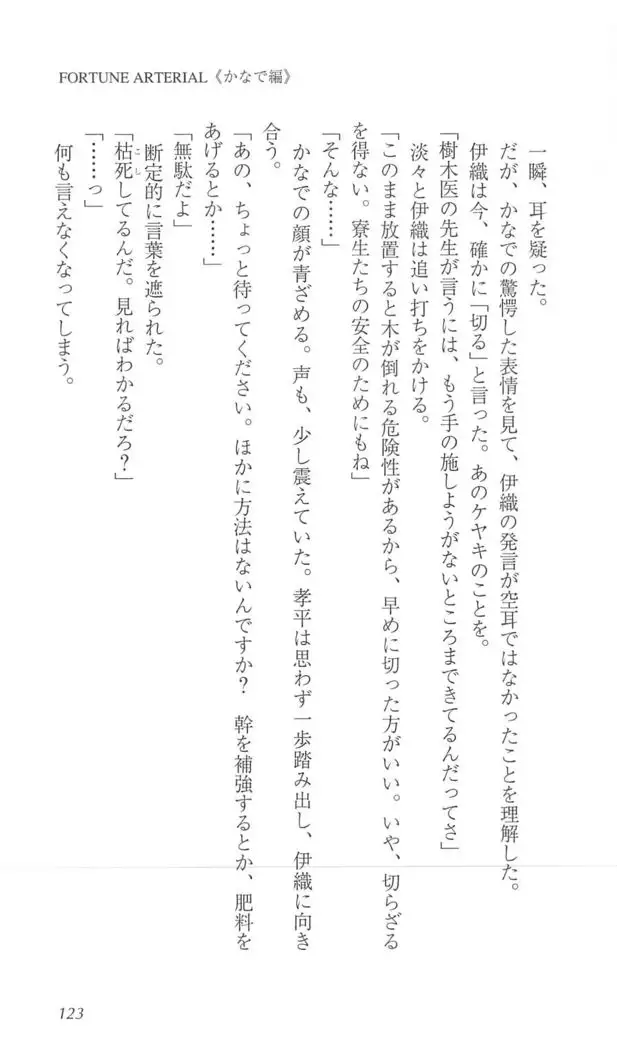 FORTUNE ARTERIAL《かなで編》
一瞬、耳を疑った。
だが、かなでの驚愕した表情を見て、伊織の発言が空耳ではなかったことを理解した。
伊織は今、確かに「切る」と言った。あのケヤキのことを。
「樹木医の先生が言うには、もう手の施しようがないところまできてるんだってさ」
淡々と伊織は追い打ちをかける。
「このまま放置すると木が倒れる危険性があるから、早めに切った方がいい。いや、切らざる
を得ない。寮生たちの安全のためにもね」
「そんな……」
かなでの顔が青ざめる。声も、少し震えていた。孝平は思わず一歩踏み出し、伊織に向き
合う。
「あの、ちょっと待ってください。ほかに方法はないんですか?　幹を補強するとか、肥料を
あげるとか……」
「無駄だよ」
断定的に言葉を遮られた。
「枯死してるんだ。見ればわかるだろ?」
こし
「……っ」
何も言えなくなってしまう。
123